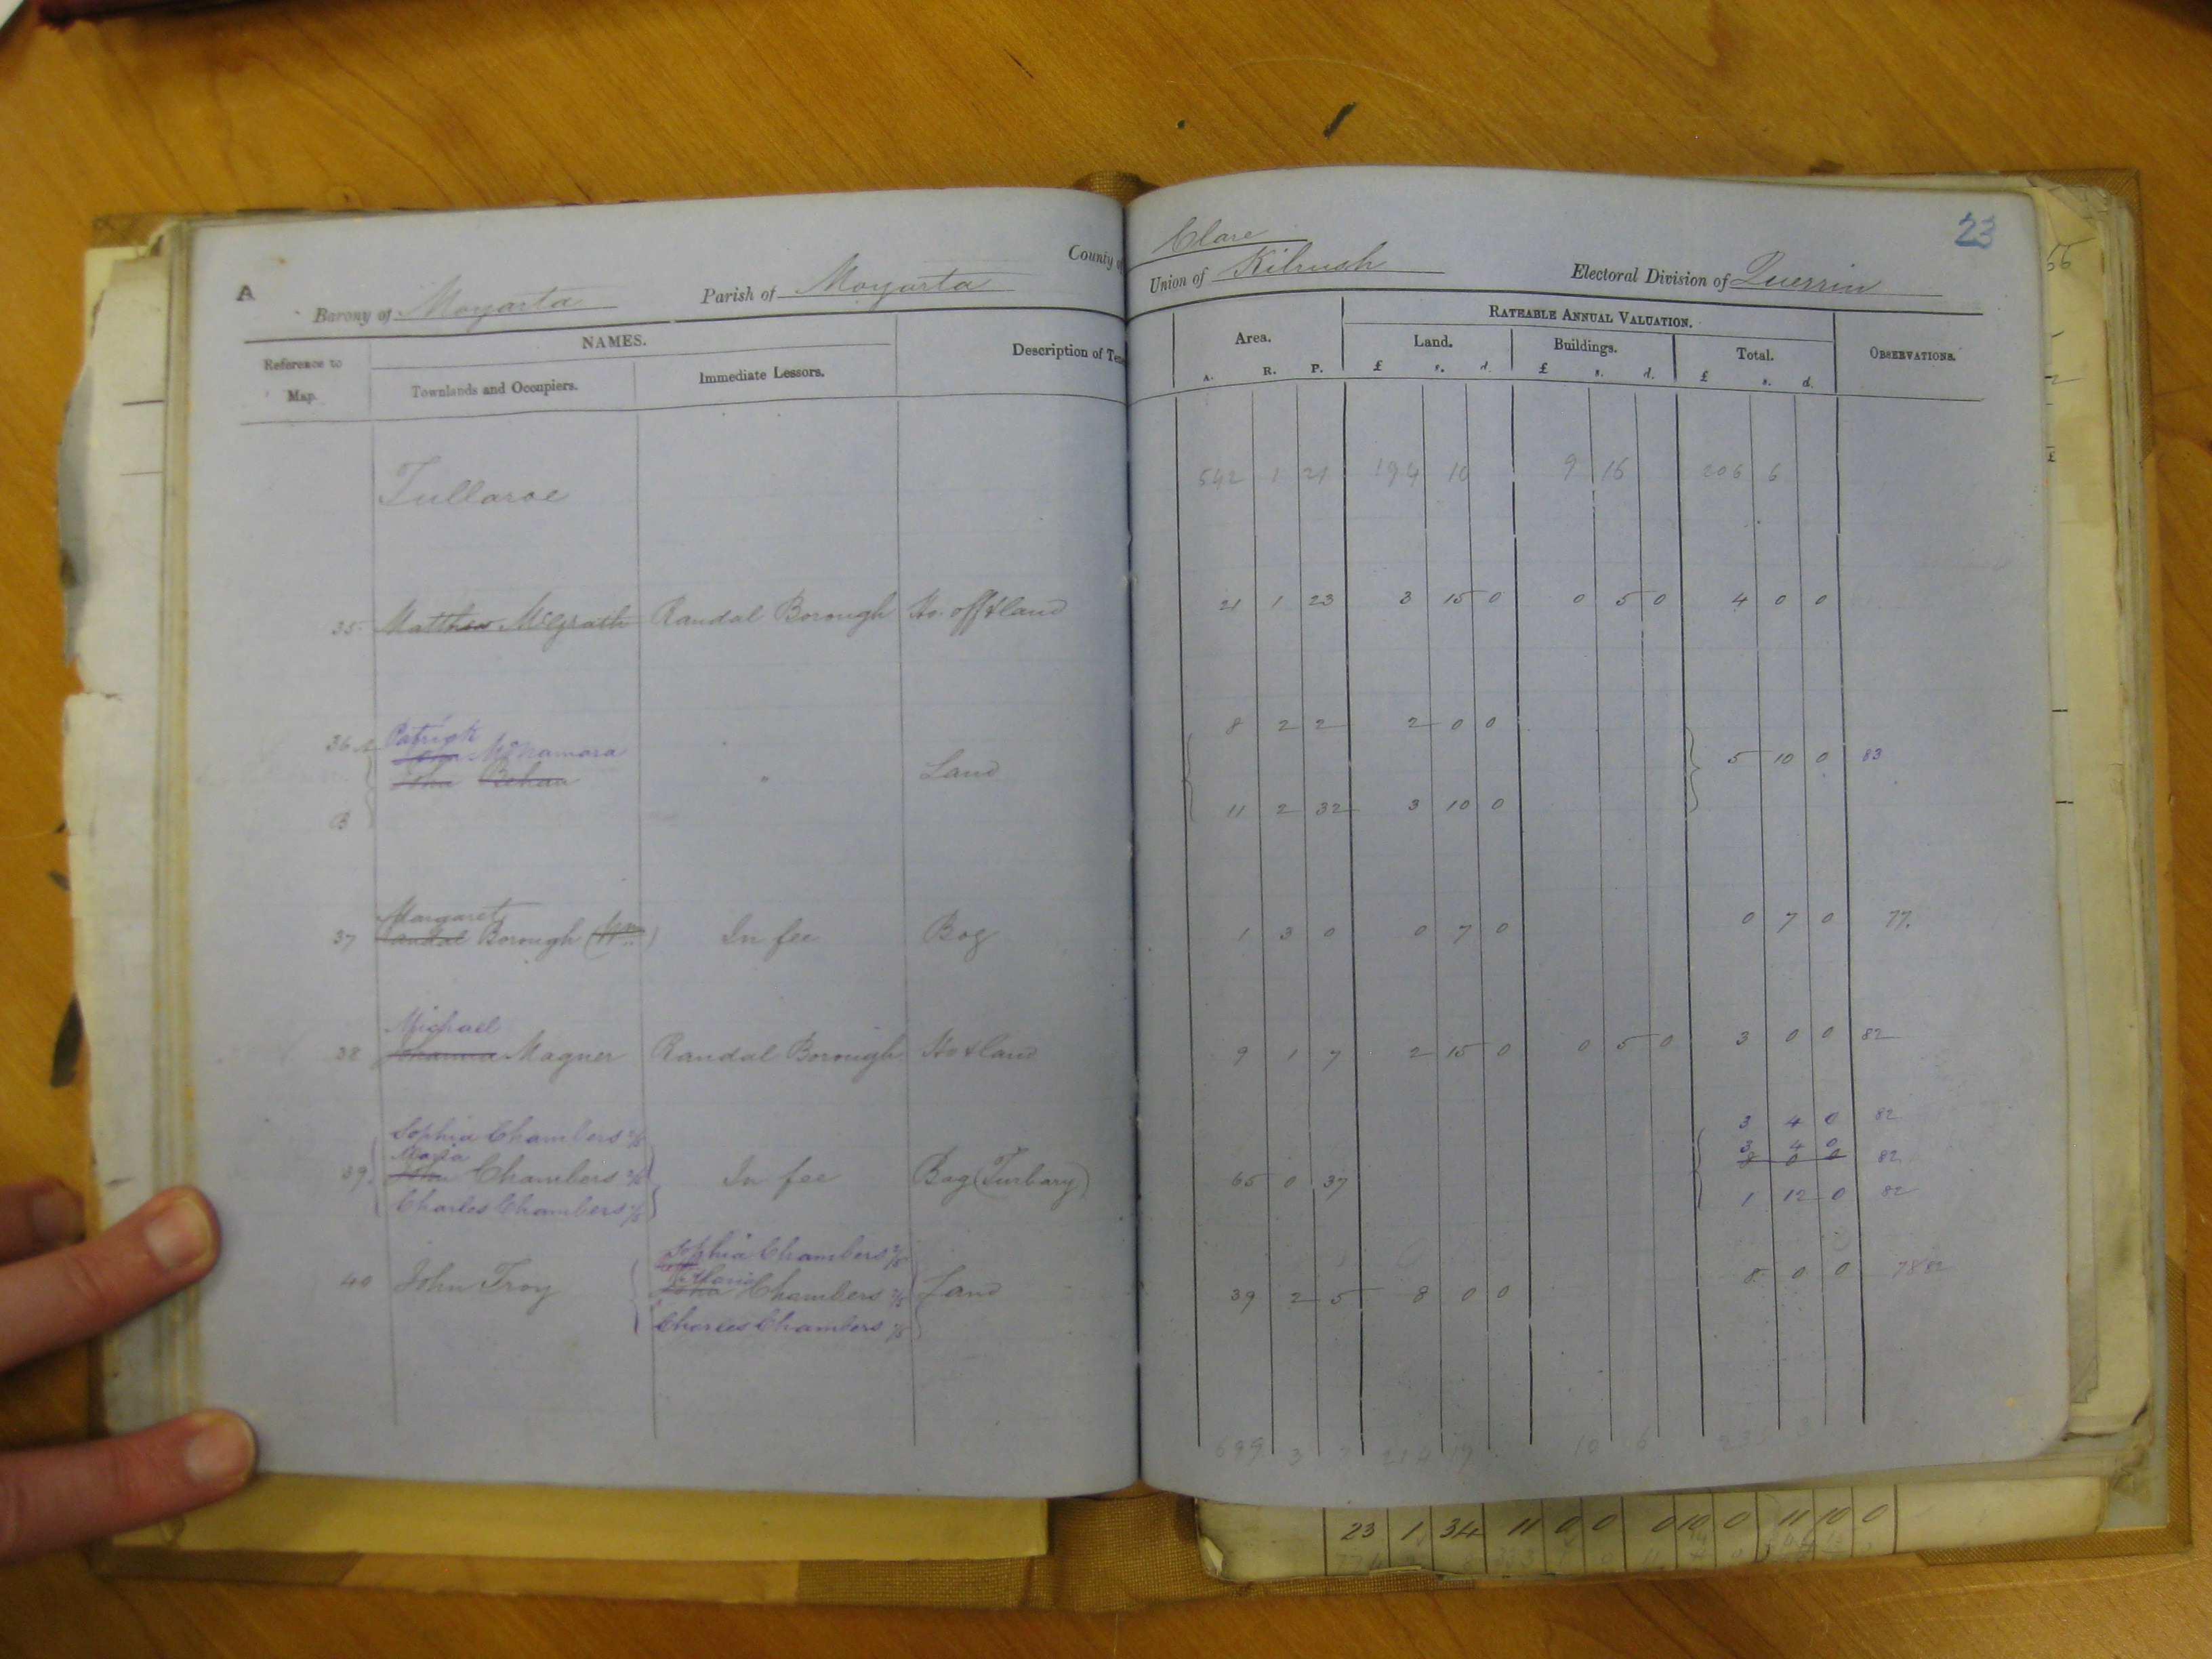 23
A
County of Clare
Barony of Moyarta Parish of Moyarta Union of Kilrush Electoral Division of Querrin
Reference to Map. NAMES. Description of Ten Area. RATEABLE ANNUAL VALUATION. OBSERVATIONS.
Townlands and Occupiers. Immediate Lessors. Land. Buildings. Total.
A. R. P. £ s. d. £ s. d. £ s. d.
Tullaroe 542 1 21 194 16 9 15 206 6
35 Matthew McGrath Randal Borough Ho. off & land 21 1 23 3 15 0 0 5 0 4 0 0
Patrick
36 A John McNamara " 8 2 2 2 0 0
John Behan Land 5 10 0 83
B 11 2 32 3 10 0
Margaret
37 Randal Borough (Wm) In fee Bog 1 3 0 0 7 0 0 7 0 77.
Michael
38 Johanna Magner Randal Borough Ho & land 9 1 7 2 15 0 0 5 0 3 0 0 82
Sophia Chambers 2/5 3 4 0 82
Maria 3 4 0
39 John Chambers 2/5 In fee Bog (Turbary) 65 0 37 8 0 0 82
Charles Chambers 1/5 1 12 0 82
Sophia Chambers 2/5
Maria
40 John Troy John Chambers 2/5 Land 39 2 5 8 0 0 8 0 0 78 82
Charles Chambers 1/5
699 3 7 214 19 10 6 3
23 1 34 11 0 0 0 10 0 11 10 0